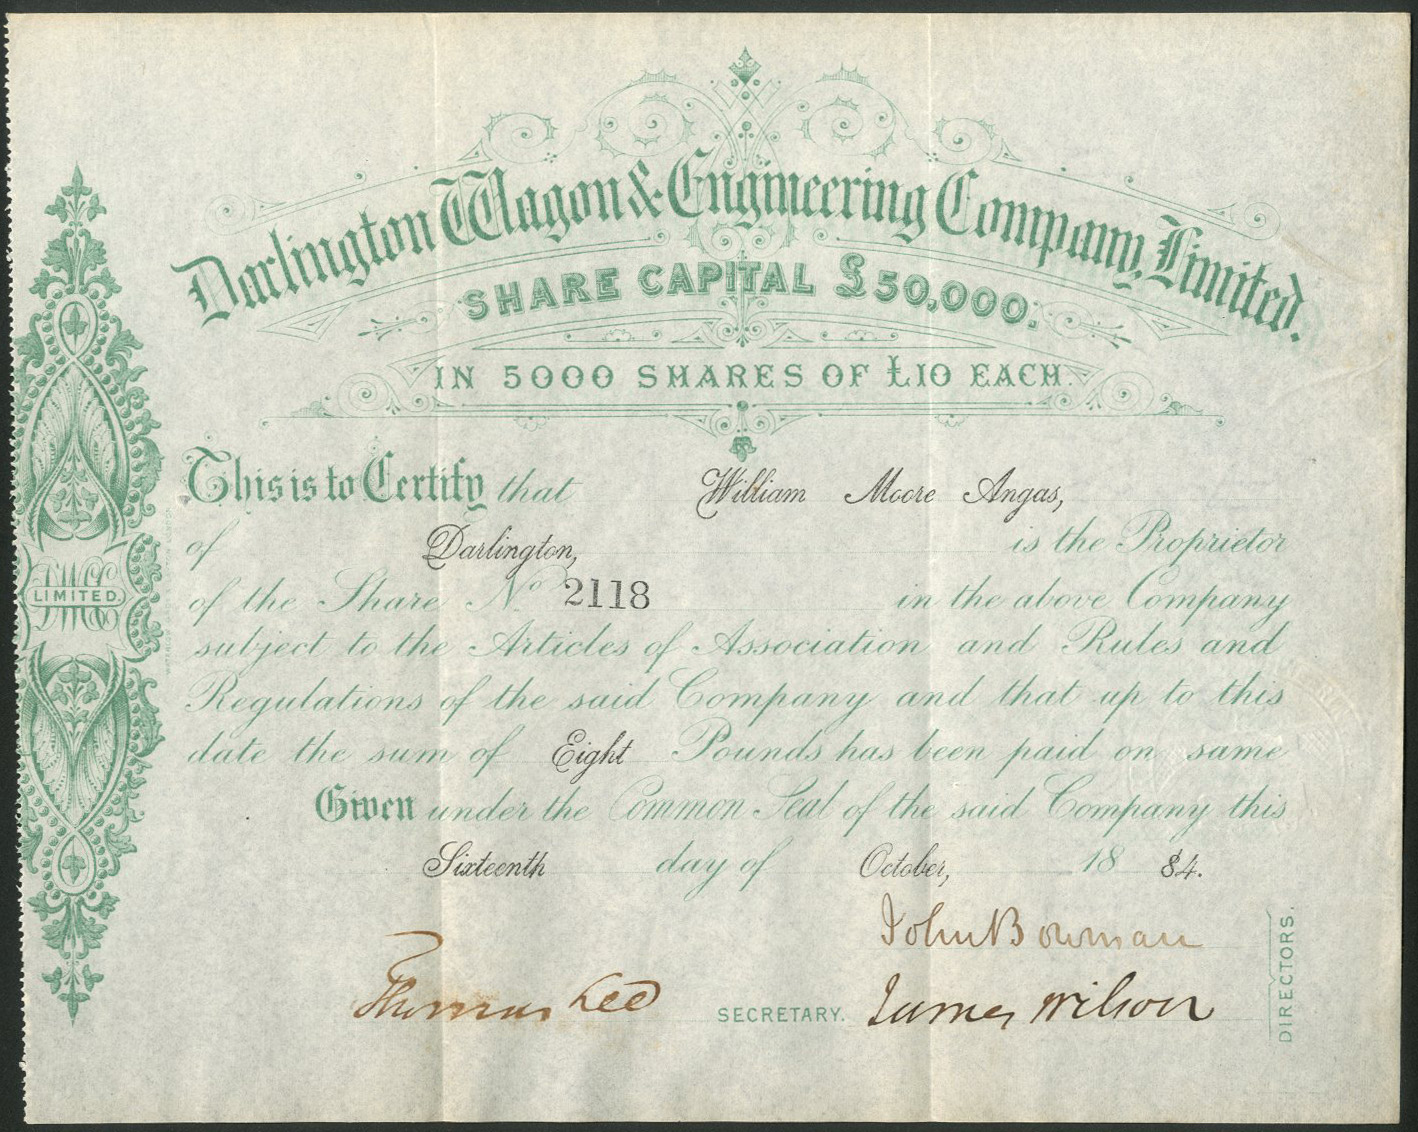 Darlington Wagon & Engineering Company, Limited.
SHARE CAPITAL £50,000.
IN 5000 SHARES OF £10 EACH.
This is to Certify that William Moore Angas,
of Darlington, is the Proprietor
of the Share No 2118 in the above Company
subject to the Articles of Association and Rules and
Regulations of the said Company and that up to this
date the sum of Eight Pounds has been paid on same
Given under the Common Seal of the said Company this
Sixteenth day of October, 18 84.
John Bowman
Thomas Lee SECRETARY. James Wilson
DIRECTORS.
LIMITED.